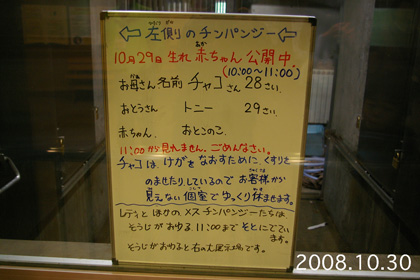 ⇦ 左側のチンパンジー ⇦
10月29日生れ 赤ちゃん 公開中.
(10:00〜11:00)
お母さん名前 チャコさん 28さい.
おとうさん トニー 29さい.
赤ちゃん. おとこのこ.
11:00から見れません. ごめんなさい。
チャコは けがをなおすために、くすりを
のませたりしているので お客様から
見えない 個室で ゆっくり 休ませます。
レディと ほかの メスチンパンジーたちは
そうじが おわる、11:00まで そとに でてい
ます。
そうじが おわると 右の大展示場です。
2008.10.30